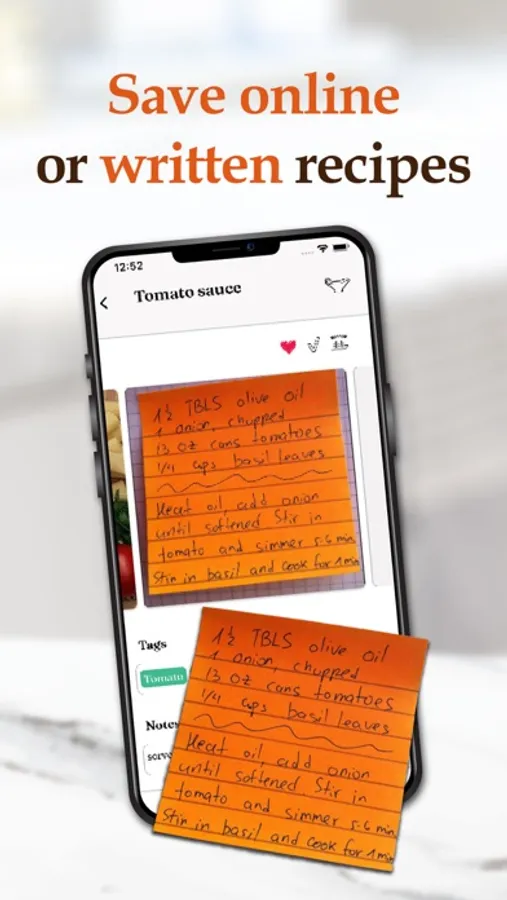 Save online
or written recipes
12:52
Tomato sauce
1½ TBLS olive oil
1 onion, chupped
13 oz cans tomatoes
1/4 cups basil leaves
Heat oil, add onion
until softened Stir in
tomato and simmer 5-6 min
Stir in basil and cook for 1min
Tags
Tomato
Notes
1½ TBLS olive oil
1 onion, chupped
13 oz cans tomatoes
1/4 cups basil leaves
Heat oil, add onion
until softened Stir in
tomato and simmer 5-6 min
Stir in basil and cook for 1min